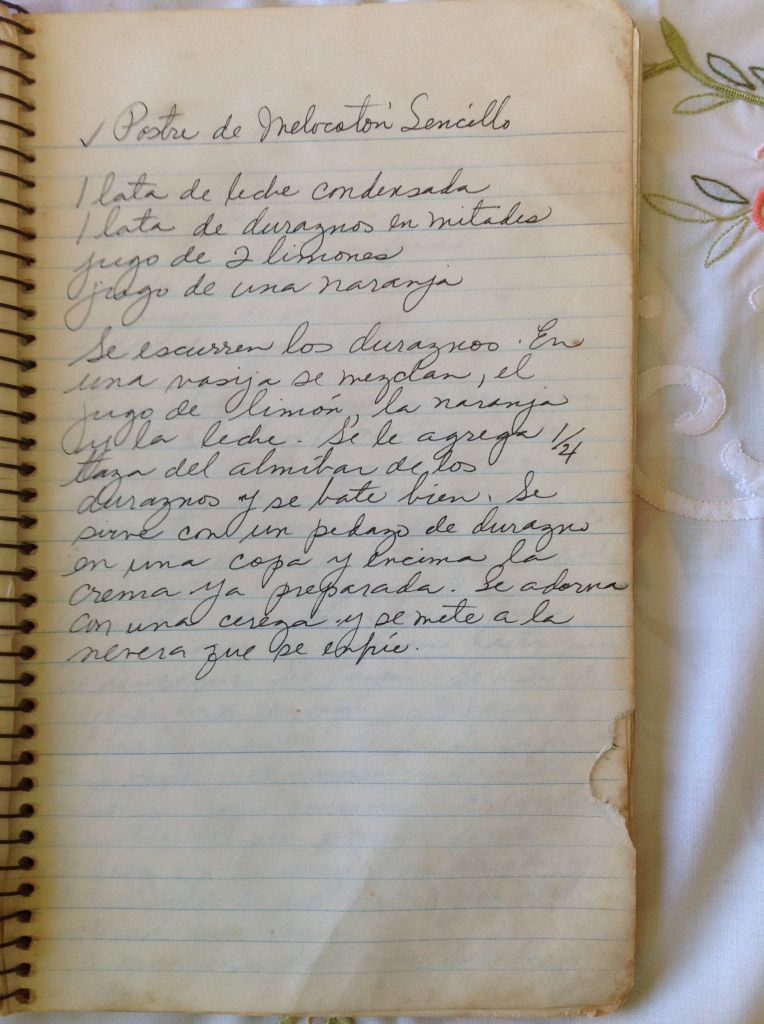 ✓ Postre de Melocotón Sencillo
1 lata de leche condensada
1 lata de duraznos en mitades
jugo de 2 limones
jugo de una naranja
Se escurren los duraznos. En
una vasija se mezclan, el
jugo de limón, la naranja
y la leche. Se le agrega 1/4
taza del almíbar de los
duraznos y se bate bien. Se
sirve con un pedazo de durazno
en una copa y encima la
crema ya preparada. Se adorna
con una cereza y se mete a la
nevera que se enfríe.